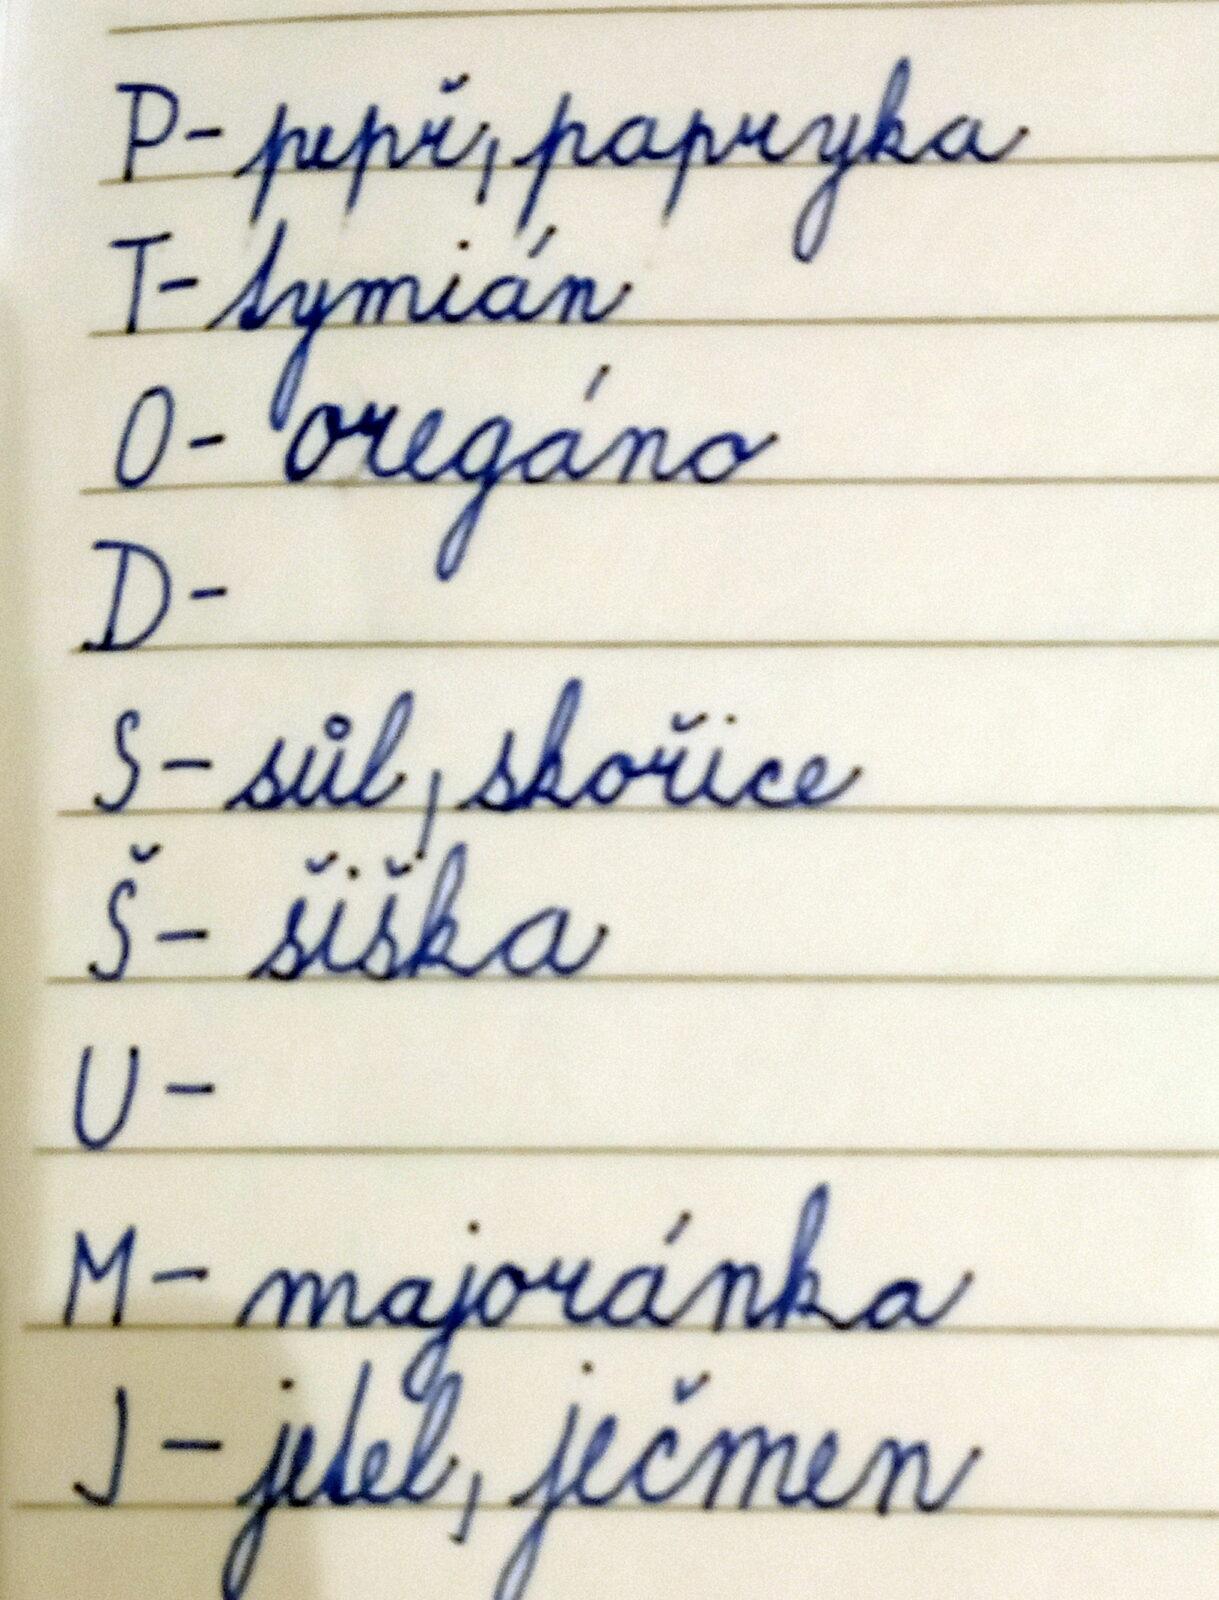 P- pepř, papryka
T- tymián
O- oregáno
D-
S- sůl, skořice
Š- šiška
U-
M- majoránka
J- jetel, ječmen